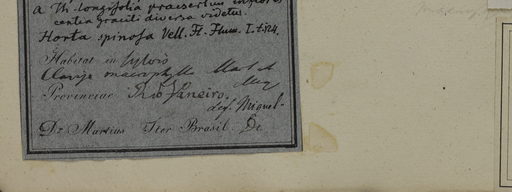 a Th. longifolia praesertim inflores
centia gracili diversa videtur.
Horta spinosa Vell. Fl. Flum. I. t. 124.
Habitat in sylvis
Clavija macrophylla
Provinciae Rio Janeiro.
det. Miquel
Dr. Martius Iter Brasil. De